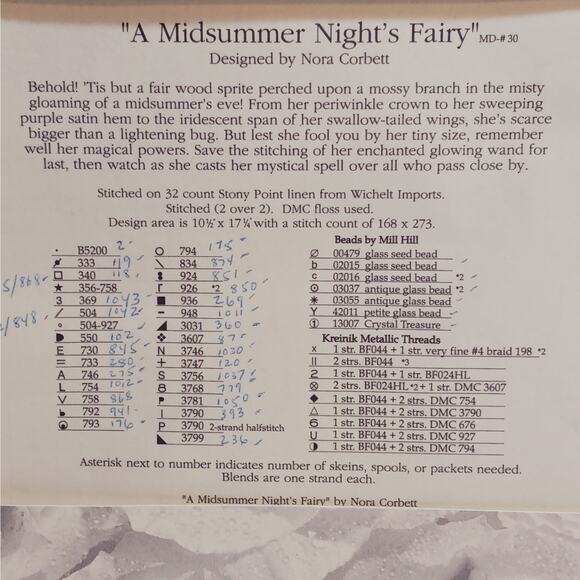 "A Midsummer Night's Fairy" MD-#30
Designed by Nora Corbett
Behold! 'Tis but a fair wood sprite perched upon a mossy branch in the misty
gloaming of a midsummer's eve! From her periwinkle crown to her sweeping
purple satin hem to the iridescent span of her swallow-tailed wings, she's scarce
bigger than a lightening bug. But lest she fool you by her tiny size, remember
well her magical powers. Save the stitching of her enchanted glowing wand for
last, then watch as she casts her mystical spell over all who pass close by.
Stitched on 32 count Stony Point linen from Wichelt Imports.
Stitched (2 over 2). DMC floss used.
Design area is 10½" x 17¼" with a stitch count of 168 x 273.
· B5200 2
333 119
5/868 340 118
★ 356-758
3 369 1043
/848 504 1042
504-927
550 102
E 730 845
= 733 280
A 746 275
L 754 1012
V 758 868
792 941
793 176
O 794 175
\ 834 874
924 851
926 *2 850
■ 936 269
– 948 1011
3031 360
❖ 3607 87
N 3746 1030
+ 3747 120
S 3756 1037
8 3768 779
3781 1050
I 3790 393
P 3790 2-strand halfstitch
3799 236
Beads by Mill Hill
∅ 00479 glass seed bead
b 02015 glass seed bead
c 02016 glass seed bead *2
⊙ 03037 antique glass bead *2
✳ 03055 antique glass bead
Y 42011 petite glass bead
① 13007 Crystal Treasure
Kreinik Metallic Threads
x 1 str. BF044 + 1 str. very fine #4 braid 198 *2
|| 2 strs. BF044 *3
2 1 str. BF044 + 1 str. BF024HL
⊗ 2 strs. BF024HL *2 + 1 str. DMC 3607
◆ 1 str. BF044 + 2 strs. DMC 754
△ 1 str. BF044 + 2 strs. DMC 3790
6 1 str. BF044 + 2 strs. DMC 676
U 1 str. BF044 + 2 strs. DMC 927
◑ 1 str. BF044 + 2 strs. DMC 794
Asterisk next to number indicates number of skeins, spools, or packets needed.
Blends are one strand each.
"A Midsummer Night's Fairy" by Nora Corbett